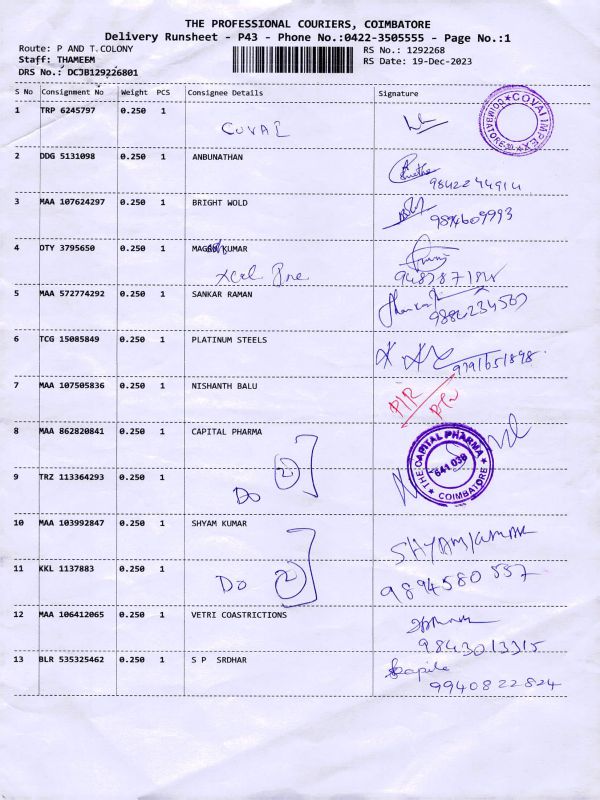 THE PROFESSIONAL COURIERS, COIMBATORE
Delivery Runsheet - P43 - Phone No.:0422-3505555 - Page No.:1
Route: P AND T.COLONY RS No.: 1292268
Staff: THAMEEM RS Date: 19-Dec-2023
DRS No.: DCJB129226801
S No Consignment No Weight PCS Consignee Details Signature
1 TRP 6245797 0.250 1
COVAI
COVAI IMPEX COIMBATORE
2 DDG 5131098 0.250 1 ANBUNATHAN
9842244914
3 MAA 107624297 0.250 1 BRIGHT WOLD
9894609993
4 DTY 3795650 0.250 1 KUMAR
5 MAA 572774292 0.250 1 SANKAR RAMAN
9884234567
6 TCG 15085849 0.250 1 PLATINUM STEELS
9791651898
7 MAA 107505836 0.250 1 NISHANTH BALU
8 MAA 862820841 0.250 1 CAPITAL PHARMA
THE CAPITAL PHARMA 641 038 COIMBATORE
9 TRZ 113364293 0.250 1
Do 2
10 MAA 103992847 0.250 1 SHYAM KUMAR
SHYAMKUMAR
11 KKL 1137883 0.250 1
Do 2
9894580557
12 MAA 106412065 0.250 1 VETRI COASTRICTIONS
9843013315
13 BLR 535325462 0.250 1 S P SRDHAR
9940822824